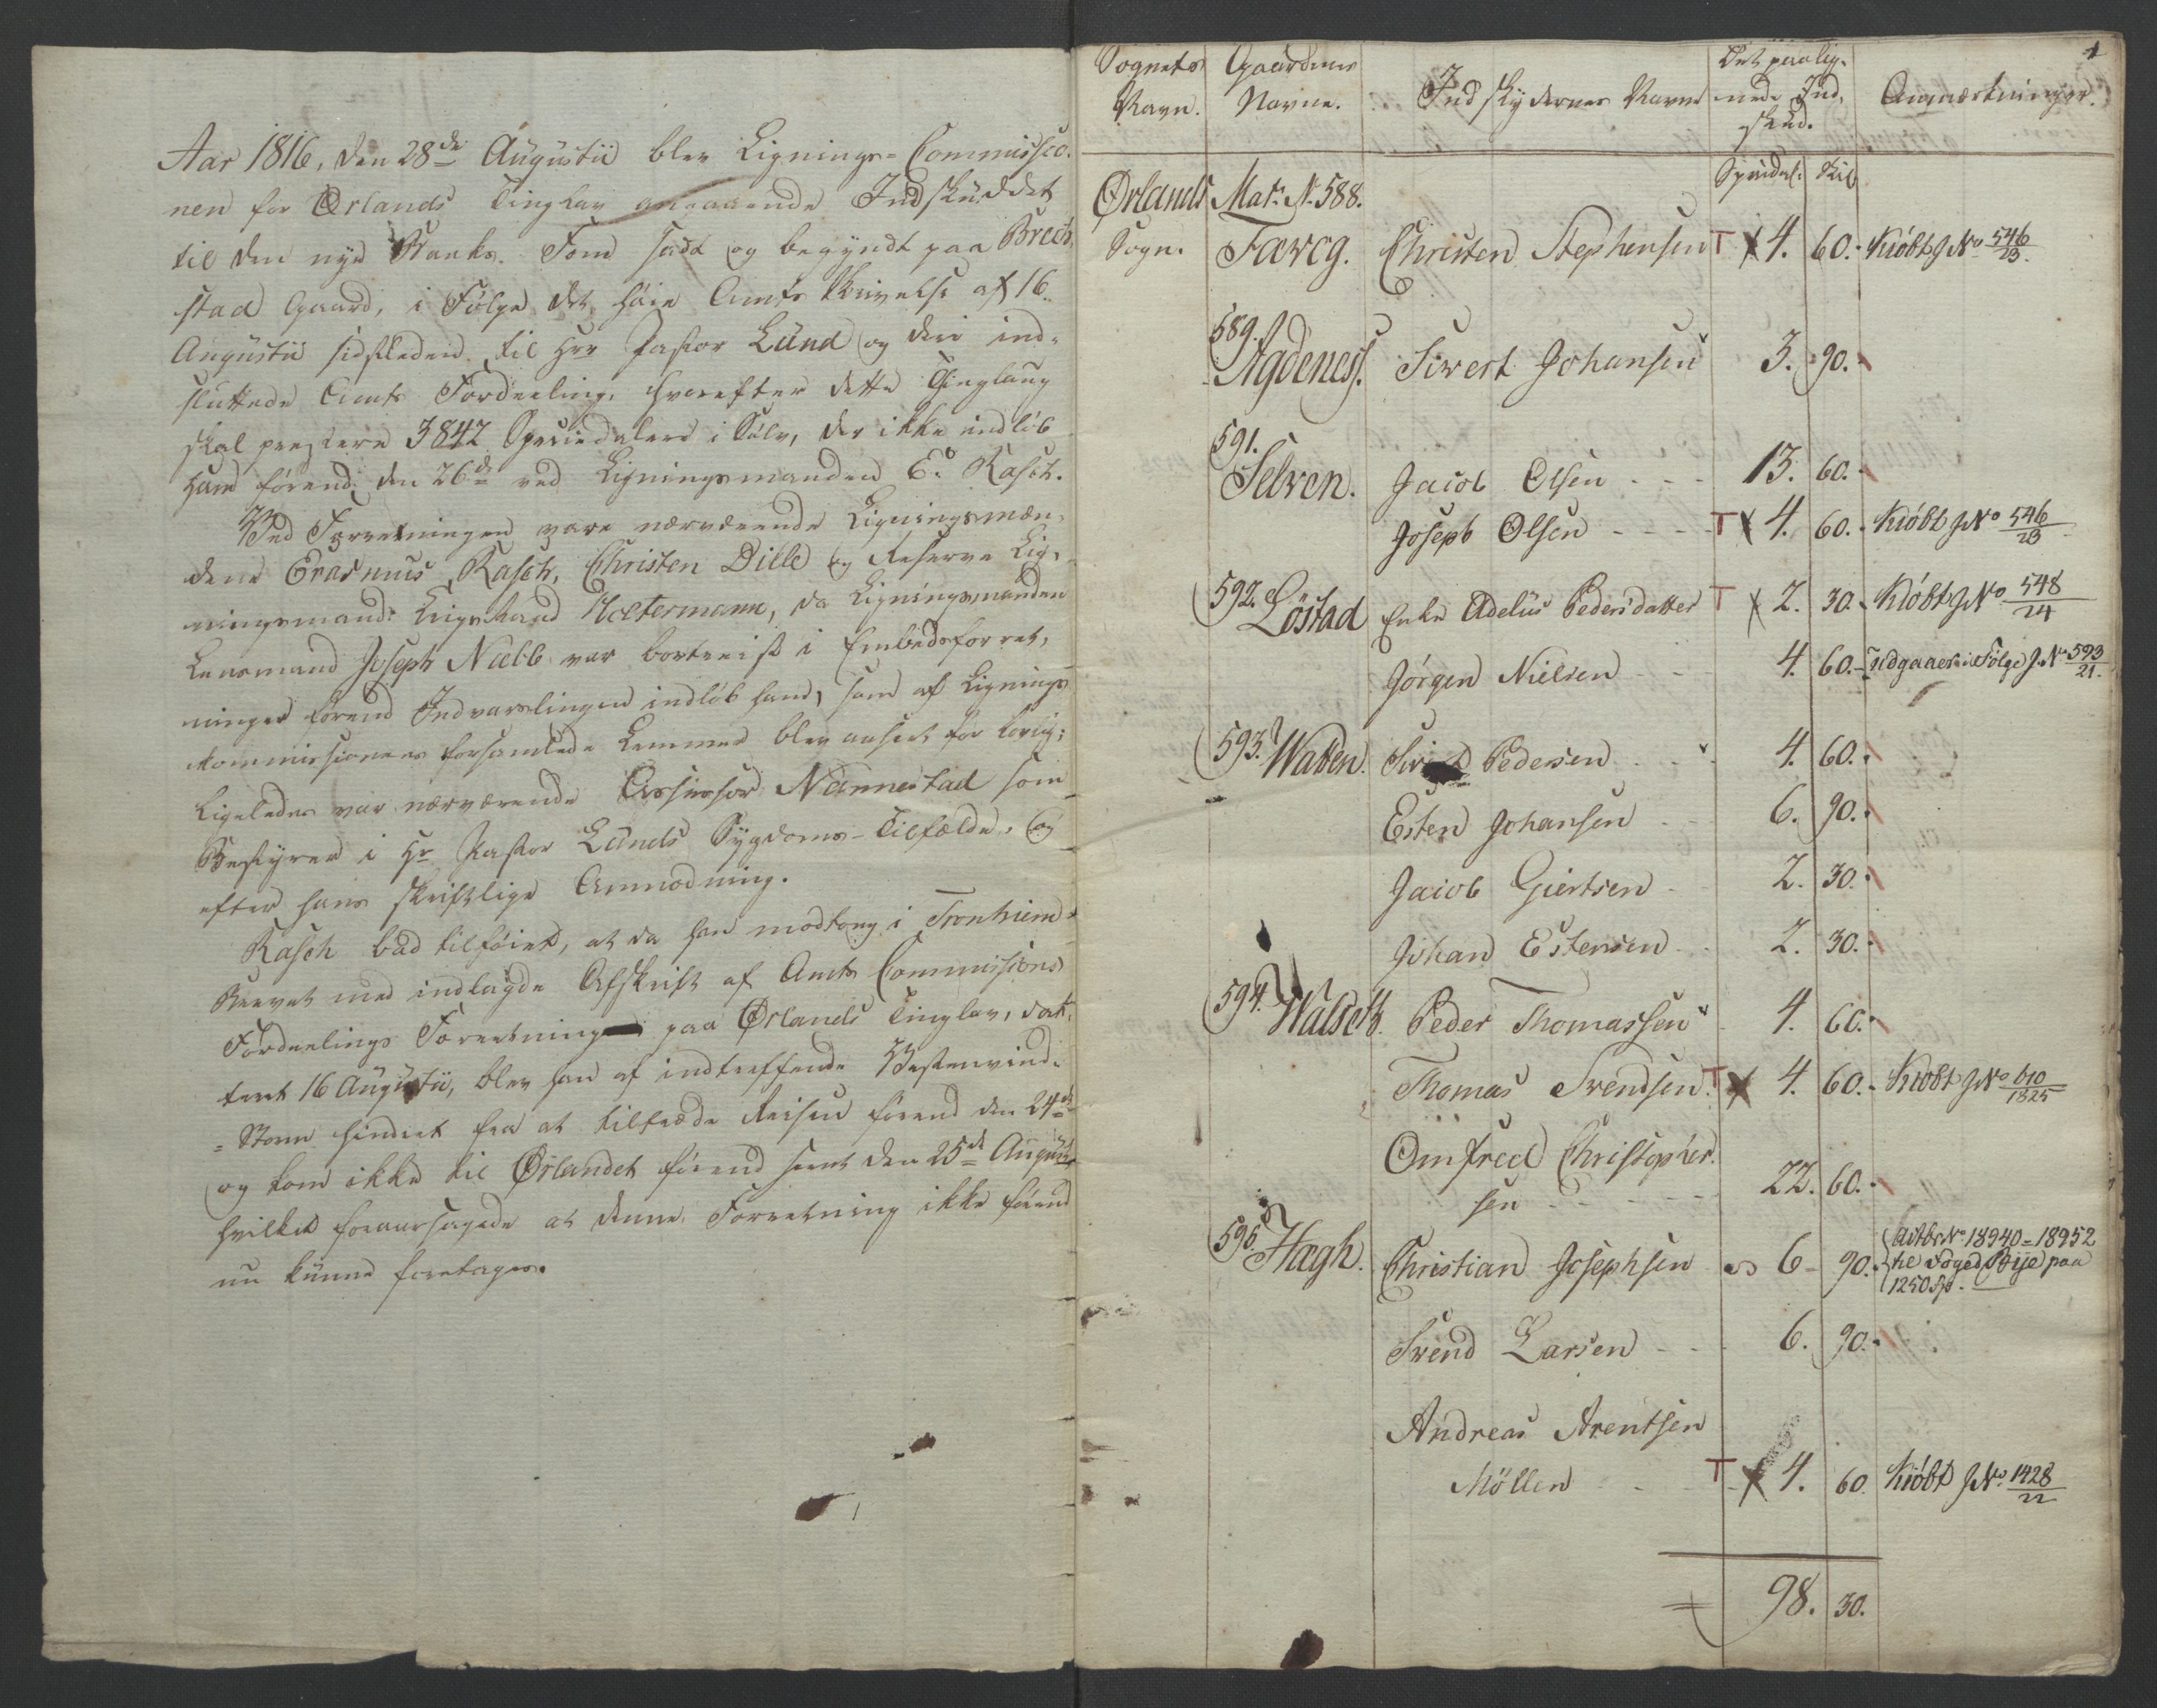 Aar 1816, den 28de Augustii blev Lignings-Commissio-
nen for Ørlands Tinglav angaaende Indskuddet
til den nye Banks-Fond sadt og begyndt paa Brech-
stad Gaard, i Følge det høie Amts Skrivelse af 16.
Augustii sidstleden til Hrr Pastor Lund og den ind-
sluttede Amts Fordeeling, hvorefter dette Tinglaug
skal præstere 3842 Speciedalere i Sølv, der ikke indløb
hand førend den 26de ved Ligningsmanden E. Rasch.
Ved Forretningen vare nærværende Ligningsmæn-
dene Erasmus Rasch, Christen Dille og Reserve Lig-
ningsmand: Krigsraad Holtermann, da Ligningsmanden
Lensmand Joseph Nebb var bortreist i Embedsforret-
ninger førend Indvarslingen indløb hand, som af Lignings
kommissionens forsamlede Lemmer blev anseet for lovlig;
Ligeledes var nærværende Assessor Nannestad som
Bestyrer i Hr Pastor Lunds Sygdoms-Tilfælde, og
efter hans skriftlige Anmodning.
Rasch bad tilføiet, at da han modtog i Tronhiem
Brevet med indlagde Afskrift af Amts Commissions
Fordeelings Forretning paa Ørlands Tinglav, dat-
teret 16 Augustii, blev han af indtreffende Vestenvind-
-Storm hindret fra at tiltræde Reisen førend den 24de
og kom ikke til Ørlandet førend seent den 25de August
hvilket foraarsagede at denne Forretning ikke førend
nu kunne foretages.
1
Sognets Navn. Gaardenes Navne. Indskydernes Navne Det paalig-
nede Ind-
skud. Anmærkninger.
Speciedal. Skil
Ørlands Mat: N. 588.
Sogn. Færvg. Christen Stephensen T x 4. 60. Kiöbt J No 546/23.
589. Agdenes. Siwert Johansen 3. 90.
591. Selven. Jacob Olsen - - - 13. 60.
Joseph Olsen - - - T x 4. 60. Kiöbt J No 546/23
592. Löstad Enke Adelus Pedersdatter T x 2. 30. Kiöbt J No 548/24
Jörgen Nielsen 4. 60. Udgaaer i Følge J. No 593/21.
593. Watten. Siwert Pedersen 4. 60.
Esten Johansen 6. 90.
Jacob Giertsen 2. 30.
Johan Estensen 2. 30.
594. Walseth. Peder Thomassen 4. 60.
Thomas Svendsen T x 4. 60. Kiöbt J No 610/1825
Omfred Christopher-
sen - - - 22. 60.
596. Hagh. Christian Josephsen 6 - 90. Actbr No 18940-18952
til Foged Bije paa
1250 Sp.
Svend Larsen - - 6. 90.
Andreas Arentsen
Möllen T x 4. 60. Kiöbt J No. 1428/22
98. 30.